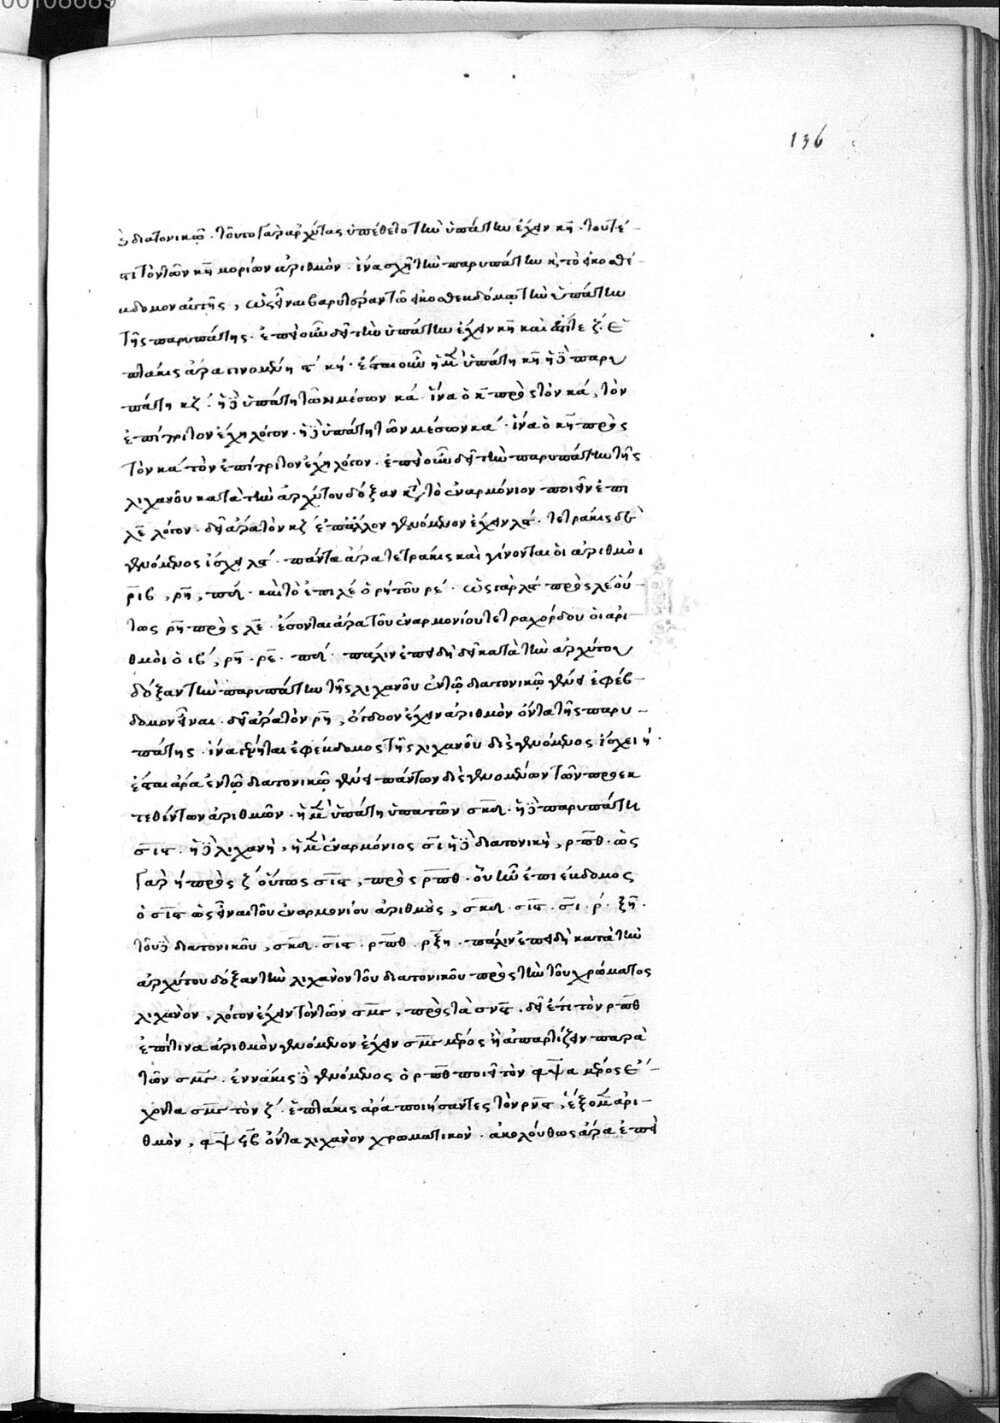 00108689
136
διατονικῷ. τοῦτο γὰρ ἀρχύτας ὑπέθετο τὴν ὑπάτην ἔχειν κη. τουτέ-
στι τὸν τῶν κη μορίων ἀριθμὸν. ἵνα σχῇ τὴν παρυπάτην κζ τὸ εἰκοσθέ-
βδομον αὐτῆς, ὡς εἶναι βαρυτέραν τῷ εἰκοσθεβδόμῳ τὴν ὑπάτην
τῆς παρυπάτης. ἐπεὶ οὖν δεῖ τὴν ὑπάτην ἔχειν κη καὶ
πτάκις ἄρα γινομένη δ κη. ἔσται οὖν ἡ μὲν ὑπάτη κη ἡ δὲ παρυ
πάτη κζ. ἡ δὲ ὑπάτη τῶν μέσων κα. ἵνα ὁ κη πρὸς τὸν κα, τὸν
ἐπίτριτον ἔχῃ λόγον. ἡ δὲ ὑπάτη τῶν μέσων κα. ἵνα ὁ κη πρὸς
τὸν κα τὸν ἐπίτριτον ἔχῃ λόγον. ἐπεὶ οὖν δεῖ τὴν παρυπάτην τῆς
λιχανοῦ κατὰ τὴν ἀρχύτου δόξαν κατὰ τὸ ἐναρμόνιον ποιεῖν ἐπὶ
λε λόγον. δεῖ ἄρα τὸν κζ ἐπ' ἄλλον γενόμενον ἔχειν λϛ. τετράκις δὲ
γενόμενος ἴσχει λϛ. πάντα ἄρα τετράκις καὶ γίνονται οἱ ἀριθμοὶ
ριβ, ρη, πδ. καὶ τὸ ἐπὶ λέ ὁ ρη τοῦ ρε. ὡς γὰρ λϛ πρὸς λέ οὕ-
τως ρη πρὸς λε. ἔσονται ἄρα τοῦ ἐναρμονίου τετραχόρδου οἱ ἀρι-
θμοὶ ὁ ιβ, ρη. ρε. πδ. πάλιν ἐπειδὴ δεῖ κατὰ τὴν ἀρχύτου
δόξαν τὴν παρυπάτην τῆς λιχανοῦ ἐν τῷ διατονικῷ γένει ἐφέβ-
δομον εἶναι. δεῖ ἄρα τὸν ρη, ὄγδοον ἔχειν ἀριθμὸν ὄντα τῆς παρυ-
πάτης. ἵνα εὑρῆται ἐφέβδομος τῆς λιχανοῦ δὶς γενόμενος ἴσχει η.
ἔσται ἄρα ἐν τῷ διατονικῷ γένει πάντων δὶς γενομένων τῶν προεκ
τεθέντων ἀριθμῶν. ἡ μὲν ὑπάτη ὑπατῶν σκδ. ἡ δὲ παρυπάτη
σιϛ. ἡ δὲ λιχανὴ, ἡ μὲν ἐναρμόνιος σι ἡ δὲ διατονικὴ, ρπθ. ὡς
γὰρ ἡ πρὸς ζ οὕτως σιϛ, πρὸς ρπθ. οὗ ἐπιέβδομος
ὁ σιϛ ὡς εἶναι τοῦ ἐναρμονίου ἀριθμοὺς, σκδ. σιϛ. σι. ρ. ξη.
τοῦ δὲ διατονικοῦ, σκδ. σιϛ. ρπθ. ρξη. πάλιν ἐπειδὴ κατὰ τὴν
ἀρχύτου δόξαν τὴν λιχανὸν τοῦ διατονικοῦ πρὸς τὴν τοῦ χρώματος
λιχανὸν, λόγον ἔχειν τὸν τῶν σμγ, πρὸς τὰ σνϛ. δεῖ ἔτι τὸν ρπθ
ἐπί τινα ἀριθμὸν γενόμενον ἔχειν σμγ μέρος ἢ ἀπαρτίζειν παρὰ
τῶν σμγ. ἐννάκις δὲ γενόμενος ὁ ρπθ ποιεῖ τὸν φψα μέρος ἔ-
χοντα σμγ τὸν ζ. ἑπτάκις ἄρα ποιήσαντες τὸν ρνϛ, ἕξομεν ἀρι-
θμὸν, φψϟβ ὄντα λιχανὸν χρωματικόν. ἀκολούθως ἄρα ἐπεὶ